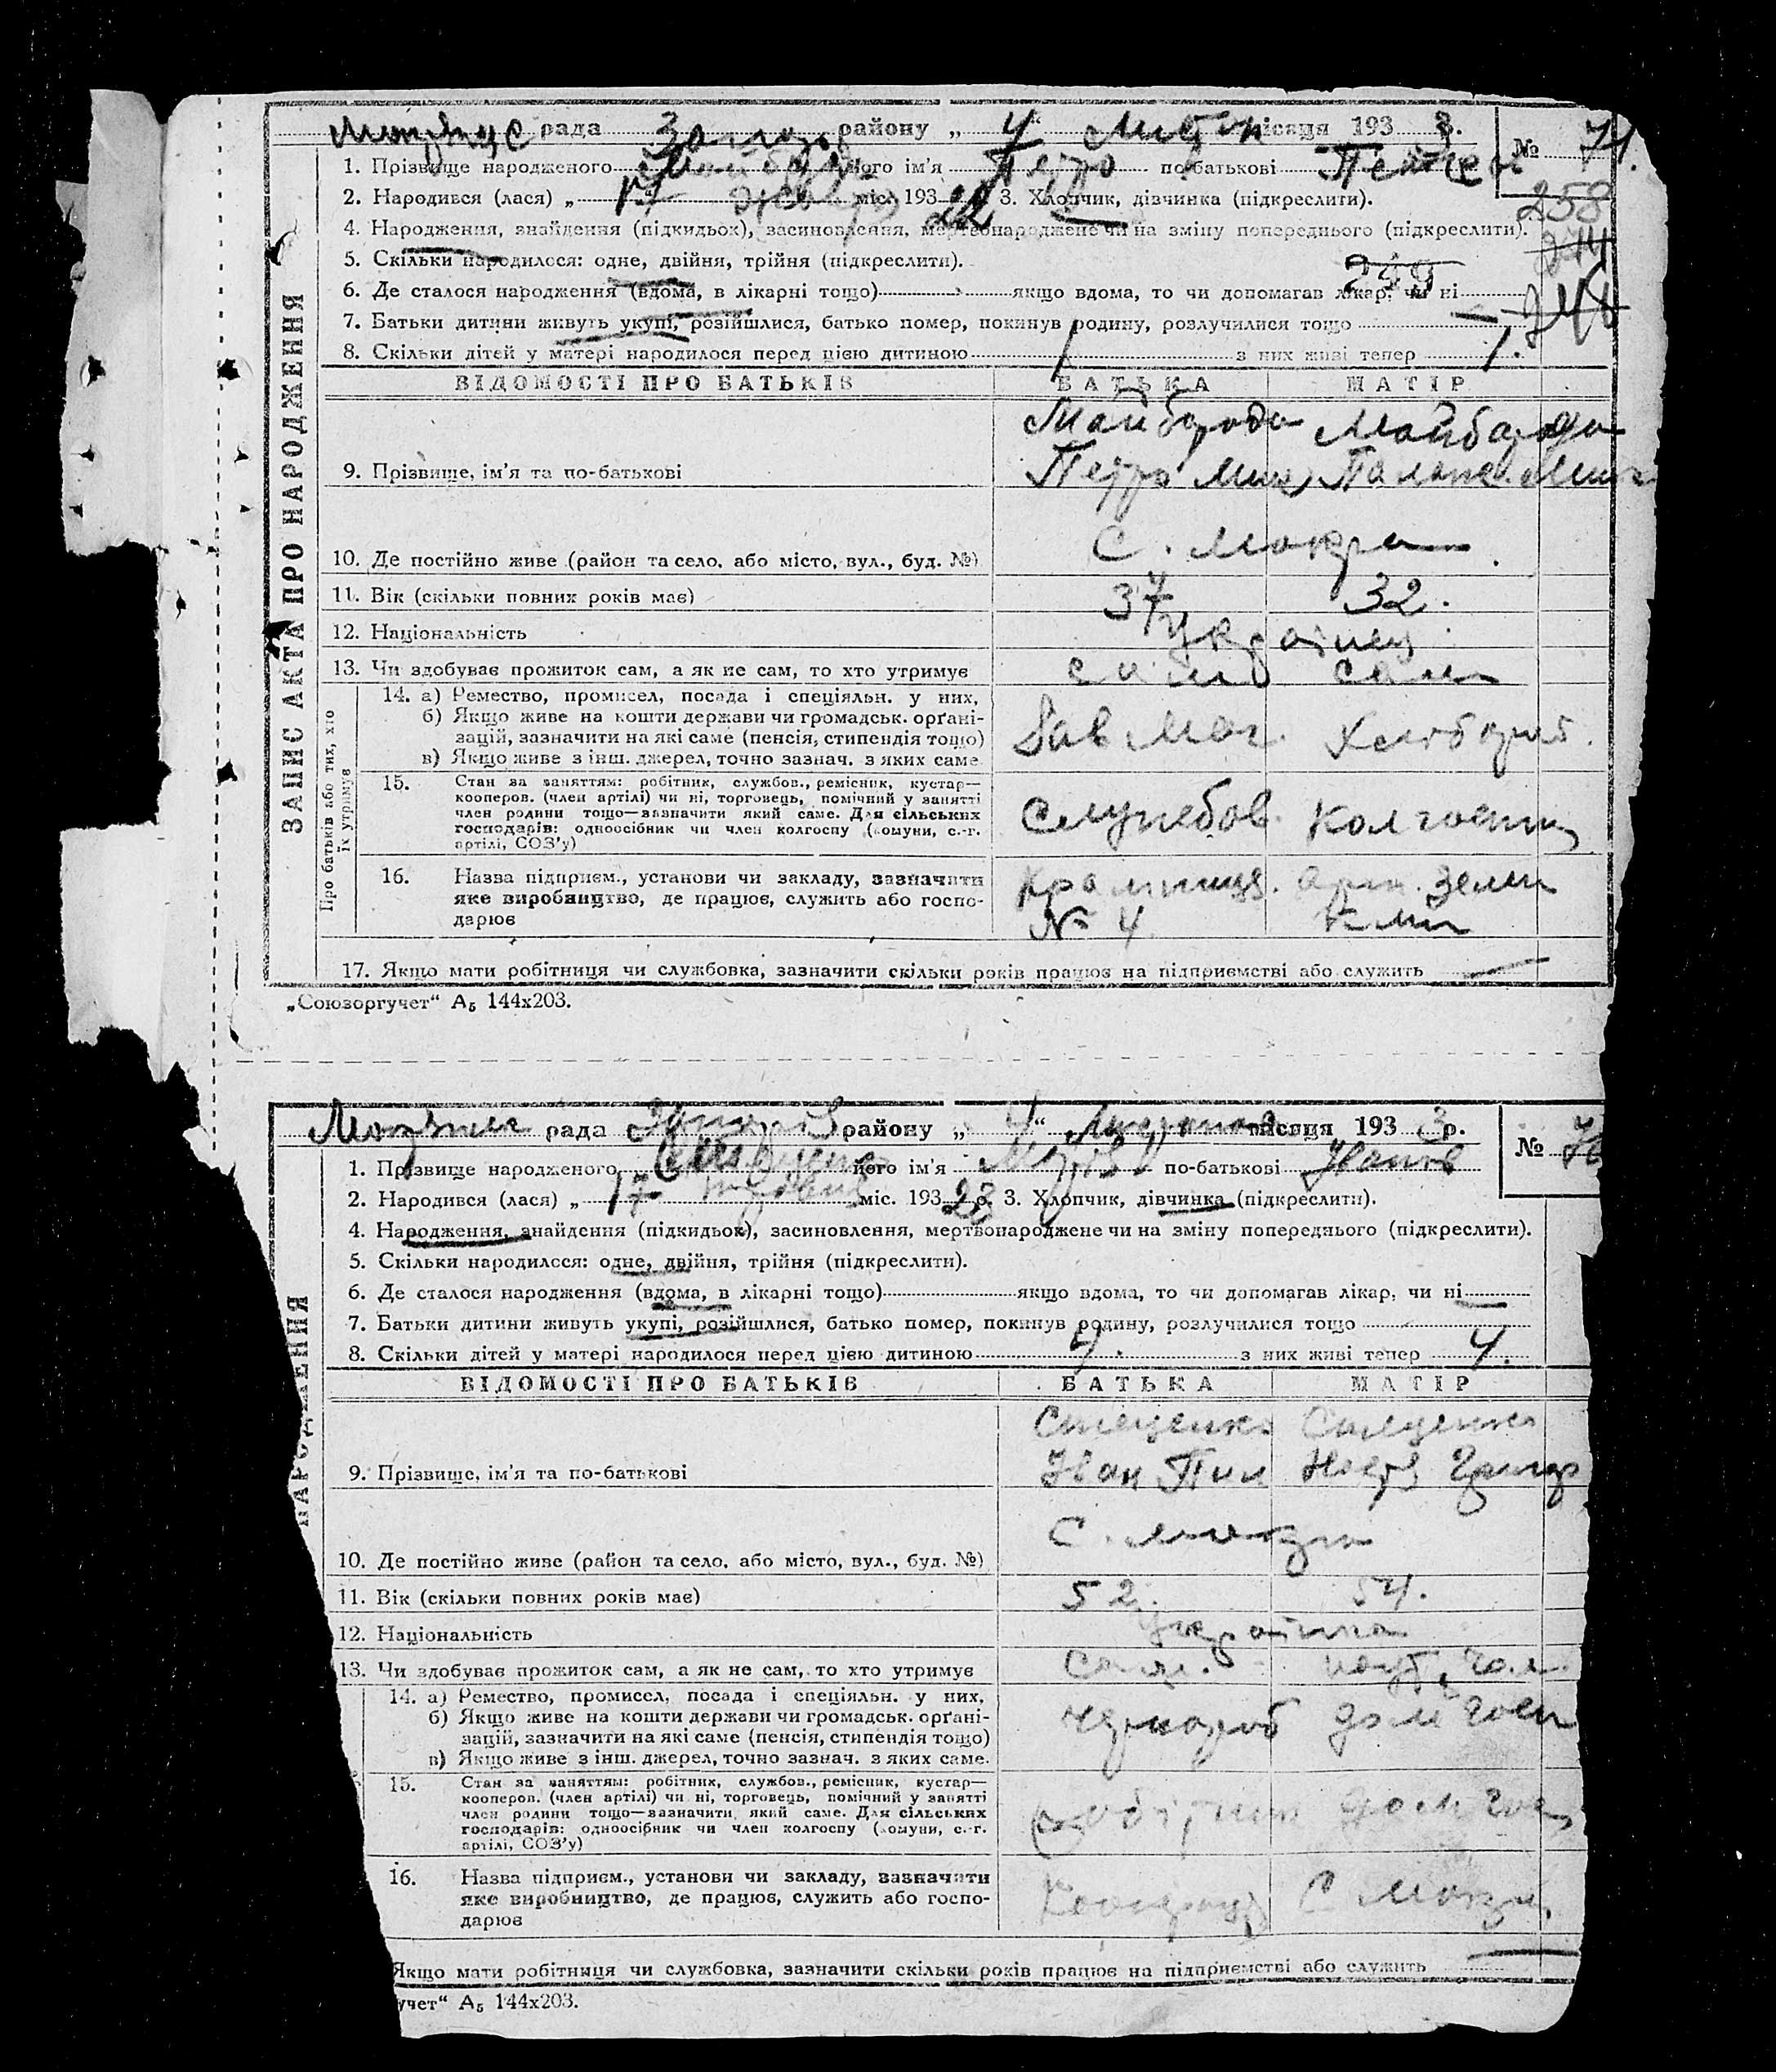 рада району „ 4 “ місяця 193 3 р. № 71.
1. Прізвище народженого його ім'я Петро по-батькові
258
2. Народився (лася) „ 17 “ міс. 193 р. 3. Хлопчик, дівчинка (підкреслити).
4. Народження, знайдення (підкидьок), засиновлення, мертвонароджене чи на зміну попереднього (підкреслити).
5. Скільки народилося: одне, двійня, трійня (підкреслити).
6. Де сталося народження (вдома, в лікарні тощо) якщо вдома, то чи допомагав лікар, чи ні
7. Батьки дитини живуть укупі, розійшлися, батько помер, покинув родину, розлучилися тощо
8. Скільки дітей у матері народилося перед цією дитиною 1 з них живі тепер 1.
ВІДОМОСТІ ПРО БАТЬКІВ БАТЬКА МАТІР
Майборода Майборода
9. Прізвище, ім'я та по-батькові Петро
10. Де постійно живе (район та село, або місто, вул., буд. №) С. Мокра
11. Вік (скільки повних років має) 37 32.
12. Національність україней
13. Чи здобуває прожиток сам, а як не сам, то хто утримує сам сама
14. а) Ремество, промисел, посада і спеціяльн. у них,
б) Якщо живе на кошти держави чи громадськ. орґані-
зацій, зазначити на які саме (пенсія, стипендія тощо) Зав Маг. Хлібороб.
в) Якщо живе з інш. джерел, точно зазнач. з яких саме
15. Стан за заняттям: робітник, службов., ремісник, кустар—
кооперов. (член артілі) чи ні, торговець, помічний у занятті
член родини тощо—зазначити який саме. Для сільських Службов. Колгоспн
господарів: одноосібник чи член колгоспу (комуни, с.-г.
артілі, СОЗ'у)
16. Назва підприєм., установи чи закладу, зазначити Крамниця.
яке виробництво, де працює, служить або госпо-
дарює № 4
17. Якщо мати робітниця чи службовка, зазначити скільки років працює на підприємстві або служить
ЗАПИС АКТА ПРО НАРОДЖЕННЯ
Про батьків або тих, хто їх утримує
„Союзоргучет“ А₅ 144х203.
рада району „ 4 “ Листопада місяця 193 3 р. №
1. Прізвище народженого його ім'я по-батькові Іванів
2. Народився (лася) „ 17 міс. 193 р. 3. Хлопчик, дівчинка (підкреслити).
4. Народження, знайдення (підкидьок), засиновлення, мертвонароджене чи на зміну попереднього (підкреслити).
5. Скільки народилося: одне, двійня, трійня (підкреслити).
6. Де сталося народження (вдома, в лікарні тощо) якщо вдома, то чи допомагав лікар, чи ні
7. Батьки дитини живуть укупі, розійшлися, батько помер, покинув родину, розлучилися тощо
8. Скільки дітей у матері народилося перед цією дитиною 4. з них живі тепер 4.
ВІДОМОСТІ ПРО БАТЬКІВ БАТЬКА МАТІР
9. Прізвище, ім'я та по-батькові Іван Пил
10. Де постійно живе (район та село, або місто, вул., буд. №) С. Мокра
11. Вік (скільки повних років має) 52. 54.
12. Національність
13. Чи здобуває прожиток сам, а як не сам, то хто утримує Сам.
14. а) Ремество, промисел, посада і спеціяльн. у них,
б) Якщо живе на кошти держави чи громадськ. орґані-
зацій, зазначити на які саме (пенсія, стипендія тощо) чорнороб дом госп
в) Якщо живе з інш. джерел, точно зазнач. з яких саме.
15. Стан за заняттям: робітник, службов., ремісник, кустар—
кооперов. (член артілі) чи ні, торговець, помічний у занятті
член родини тощо—зазначити який саме. Для сільських робітник дом гос
господарів: одноосібник чи член колгоспу (комуни, с.-г.
артілі, СОЗ'у)
16. Назва підприєм., установи чи закладу, зазначити
яке виробництво, де працює, служить або госпо-
дарює
Якщо мати робітниця чи службовка, зазначити скільки років працює на підприємстві або служить
НАРОДЖЕННЯ
учет“ А₅ 144х203.